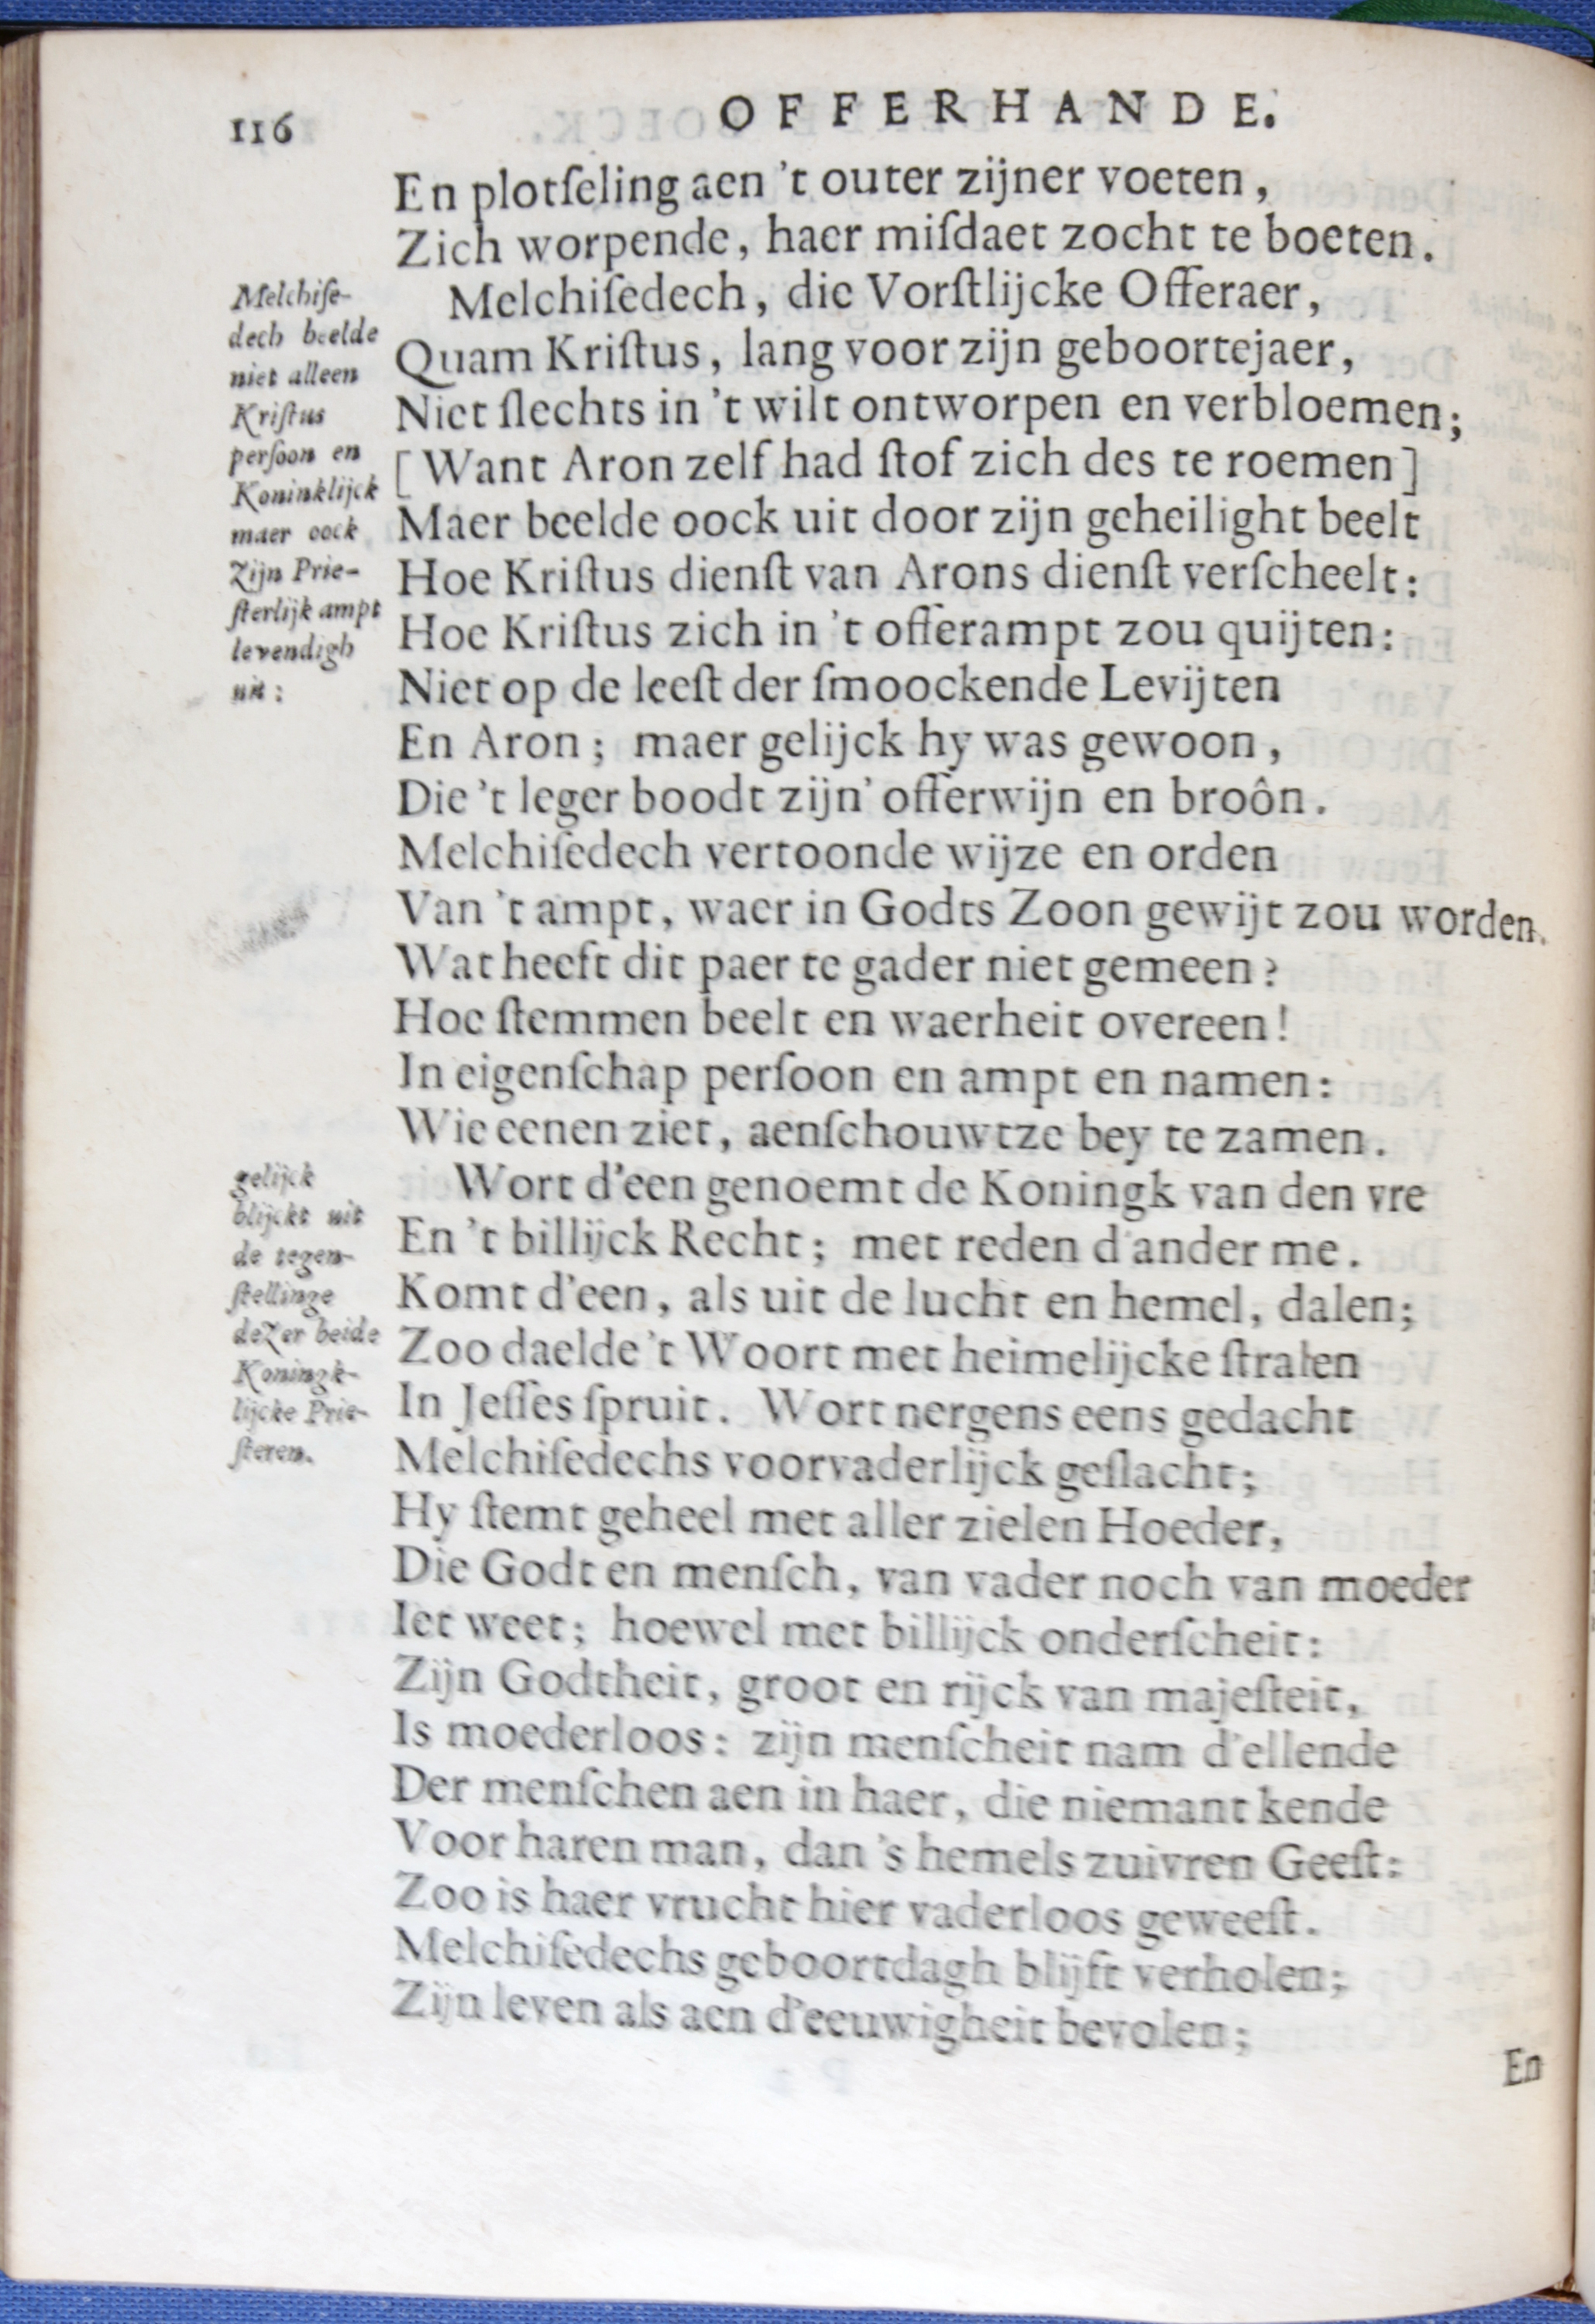 116
OFFERHANDE.
En plotſeling aen 't outer zijner voeten,
Zich worpende, haer miſdaet zocht te boeten.
Melchiſe-
dech beelde
niet alleen
Kriſtus
perſoon en
Koninklijck
maer oock
zijn Prie-
ſterlijk ampt
levendigh
uit:
Melchiſedech, die Vorſtlijcke Offeraer,
Quam Kriſtus, lang voor zijn geboortejaer,
Niet ſlechts in 't wilt ontworpen en verbloemen;
[Want Aron zelf had ſtof zich des te roemen]
Maer beelde oock uit door zijn geheilight beelt
Hoe Kriſtus dienſt van Arons dienſt verſcheelt:
Hoe Kriſtus zich in 't offerampt zou quijten:
Niet op de leeſt der ſmoockende Levijten
En Aron; maer gelijck hy was gewoon,
Die 't leger boodt zijn' offerwijn en broôn.
Melchiſedech vertoonde wijze en orden
Van 't ampt, waer in Godts Zoon gewijt zou worden.
Wat heeft dit paer te gader niet gemeen?
Hoe ſtemmen beelt en waerheit overeen!
In eigenſchap perſoon en ampt en namen:
Wie eenen ziet, aenſchouwtze bey te zamen.
gelijck
blijckt uit
de tegen-
ſtellinge
dezer beide
Koningk-
lijcke Prie-
ſteren.
Wort d'een genoemt de Koningk van den vre
En 't billijck Recht; met reden d'ander me.
Komt d'een, als uit de lucht en hemel, dalen;
Zoo daelde 't Woort met heimelijcke ſtralen
In Jeſſes ſpruit. Wort nergens eens gedacht
Melchiſedechs voorvaderlijck geſlacht;
Hy ſtemt geheel met aller zielen Hoeder,
Die Godt en menſch, van vader noch van moeder
Iet weet; hoewel met billijck onderſcheit:
Zijn Godtheit, groot en rijck van majeſteit,
Is moederloos: zijn menſcheit nam d'ellende
Der menſchen aen in haer, die niemant kende
Voor haren man, dan 's hemels zuivren Geeſt:
Zoo is haer vrucht hier vaderloos geweeſt.
Melchiſedechs geboortdagh blijft verholen;
Zijn leven als aen d'eeuwigheit bevolen;
En